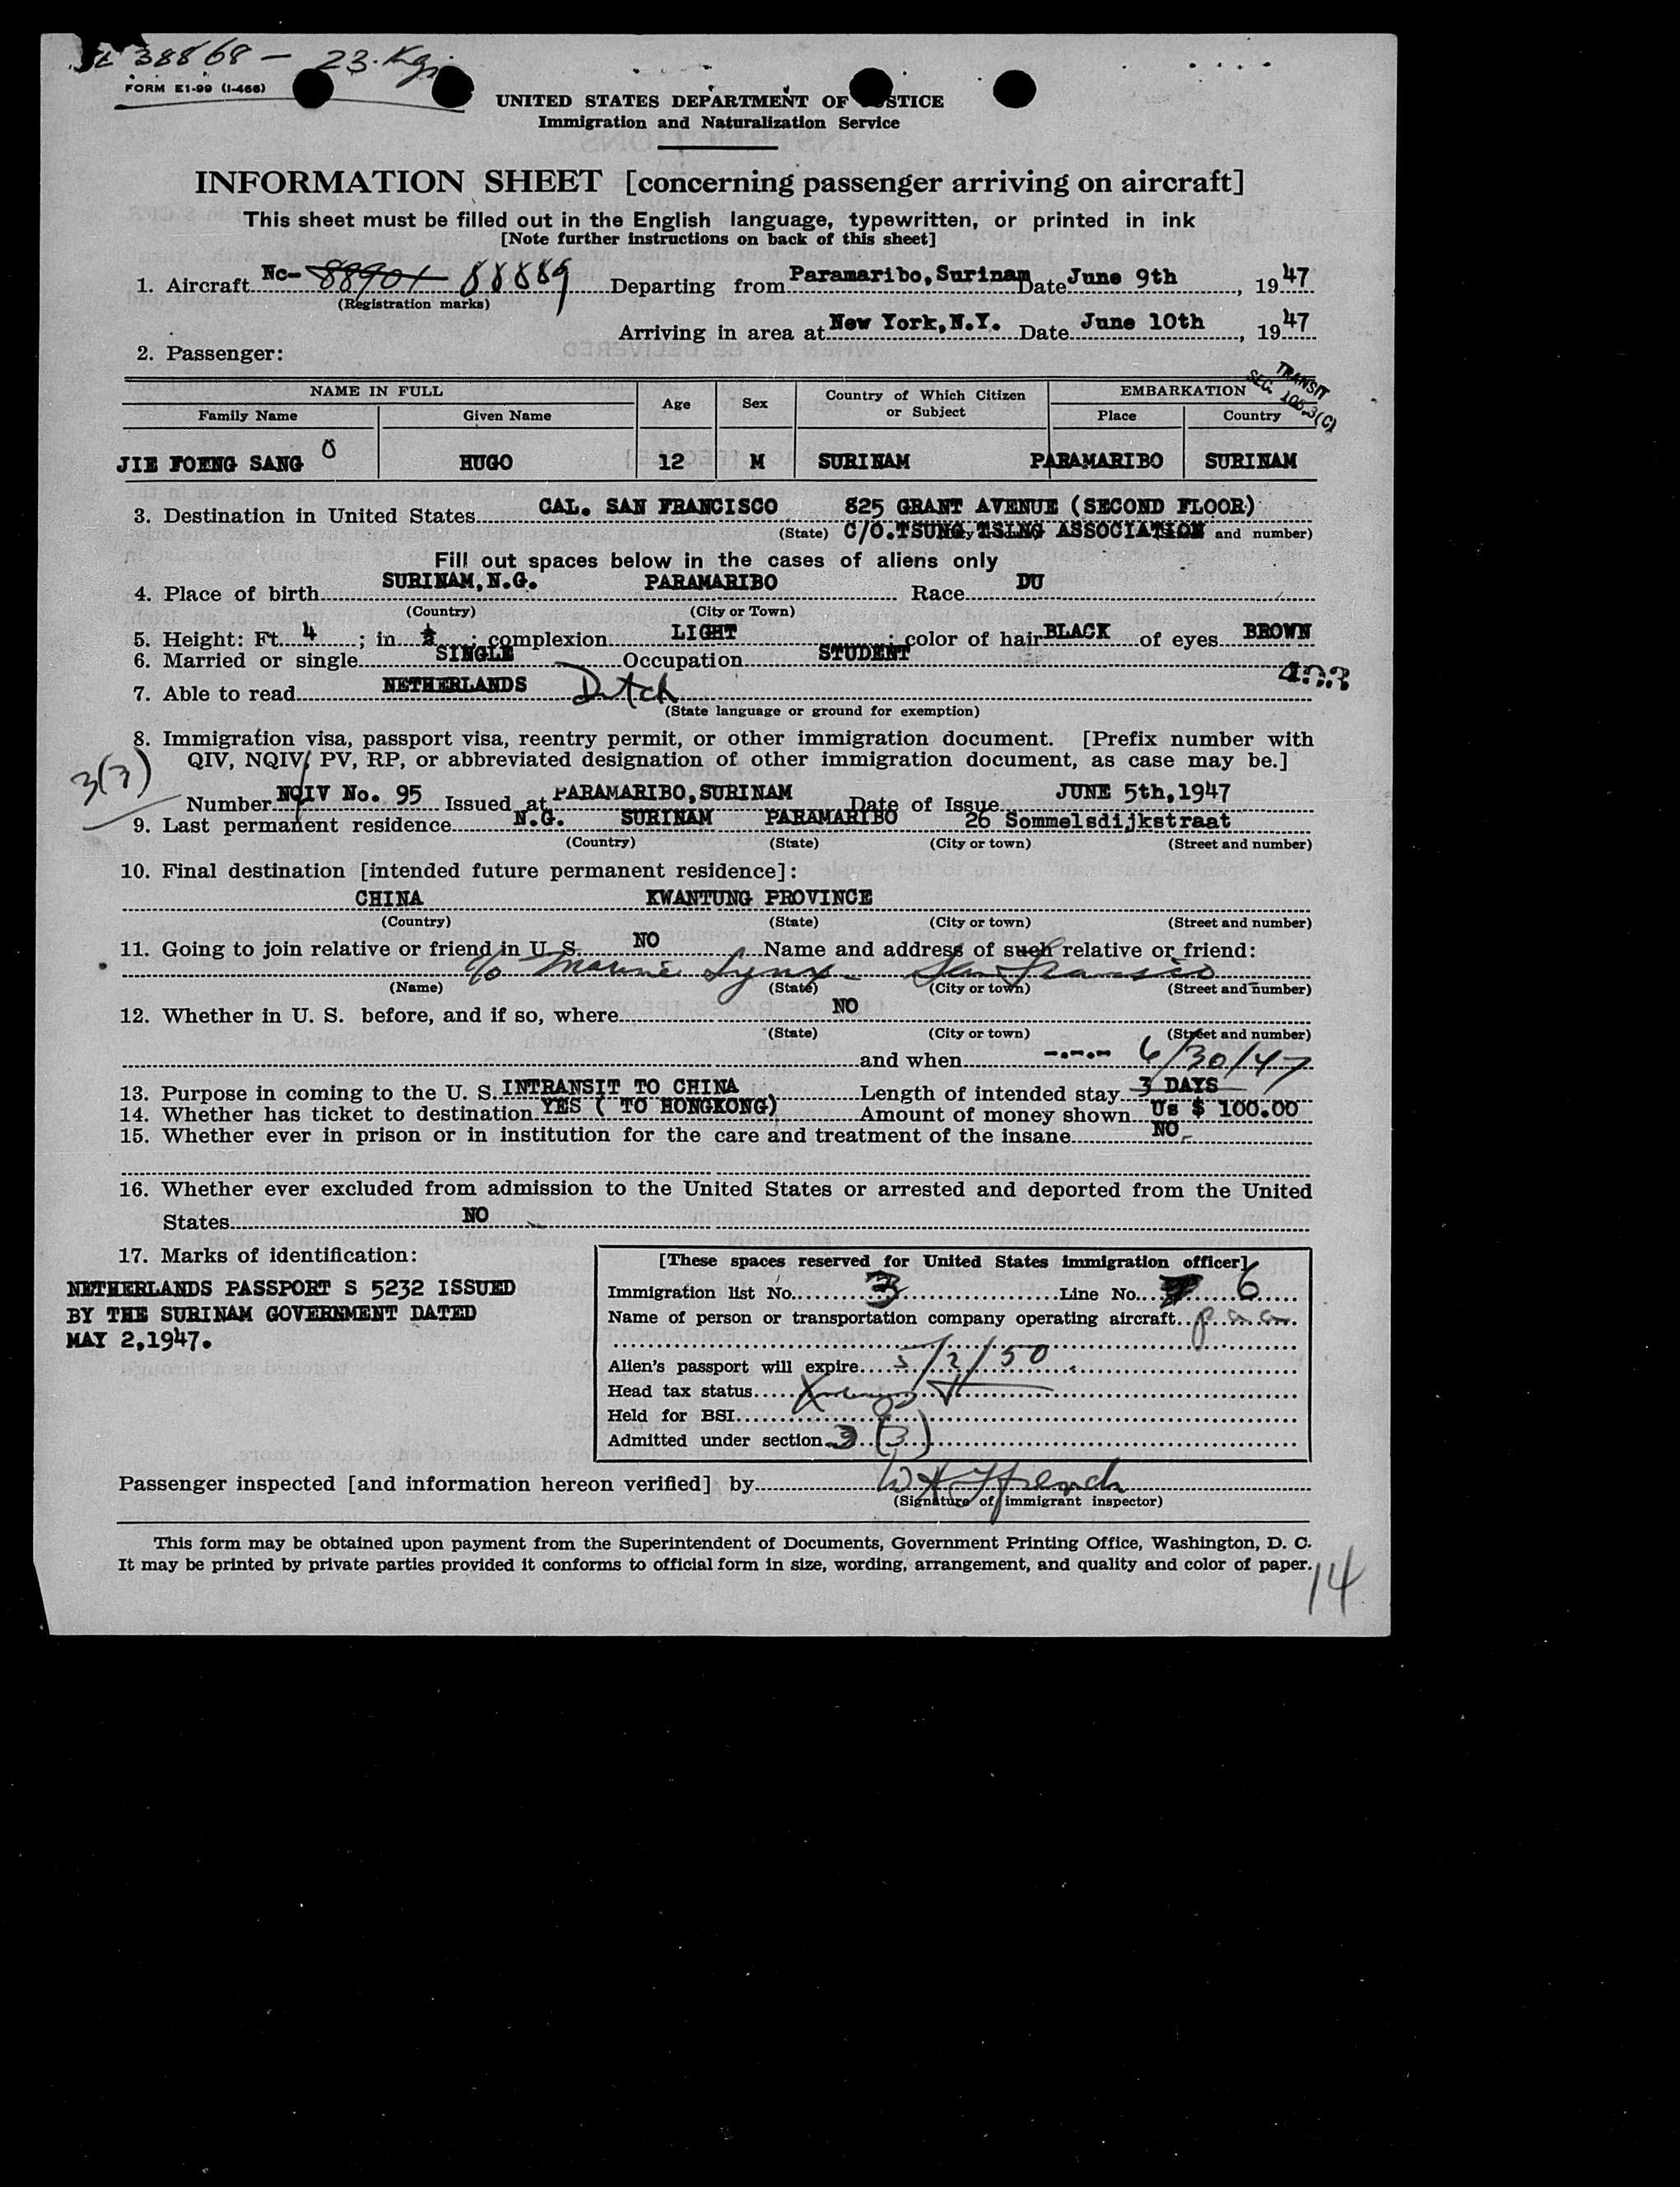 38868 - 23. Kg.
FORM E1-99 (I-466)
UNITED STATES DEPARTMENT OF STICE
Immigration and Naturalization Service
INFORMATION SHEET [concerning passenger arriving on aircraft]
This sheet must be filled out in the English language, typewritten, or printed in ink
[Note further instructions on back of this sheet]
1. Aircraft Nc- 88901 88889 Departing from Paramaribo, Surinam Date June 9th, 1947
(Registration marks)
Arriving in area at New York, N.Y. Date June 10th, 1947
2. Passenger:
TRANSIT
SEC. 105.3(C)
NAME IN FULL Age Sex Country of Which Citizen or Subject EMBARKATION
Family Name Given Name Place Country
JIE FOENG SANG 0 HUGO 12 M SURINAM PARAMARIBO SURINAM
3. Destination in United States CAL. SAN FRANCISCO 825 GRANT AVENUE (SECOND FLOOR)
(State) C/O.TSUNG TSING ASSOCIATION and number)
Fill out spaces below in the cases of aliens only
4. Place of birth SURINAM, N.G. PARAMARIBO Race DU
(Country) (City or Town)
5. Height: Ft. 4 ; in. ; complexion LIGHT ; color of hair BLACK of eyes BROWN
6. Married or single SINGLE Occupation STUDENT
7. Able to read NETHERLANDS Dutch
(State language or ground for exemption)
8. Immigration visa, passport visa, reentry permit, or other immigration document. [Prefix number with
QIV, NQIV, PV, RP, or abbreviated designation of other immigration document, as case may be.]
3(3)
Number NQIV No. 95 Issued at PARAMARIBO, SURINAM Date of Issue JUNE 5th, 1947
9. Last permanent residence N.G. SURINAM PARAMARIBO 26 Sommelsdijkstraat
(Country) (State) (City or town) (Street and number)
10. Final destination [intended future permanent residence]:
CHINA KWANTUNG PROVINCE
(Country) (State) (City or town) (Street and number)
11. Going to join relative or friend in U. S. NO Name and address of such relative or friend:
c/o Marine Lynx - San Fransisco
(Name) (State) (City or town) (Street and number)
12. Whether in U. S. before, and if so, where NO
(State) (City or town) (Street and number)
and when -.-.- 6/30/47
13. Purpose in coming to the U. S. INTRANSIT TO CHINA Length of intended stay 3 DAYS
14. Whether has ticket to destination YES ( TO HONGKONG) Amount of money shown Us $ 100.00
15. Whether ever in prison or in institution for the care and treatment of the insane NO
16. Whether ever excluded from admission to the United States or arrested and deported from the United
States NO
17. Marks of identification:
NETHERLANDS PASSPORT S 5232 ISSUED
BY THE SURINAM GOVERNMENT DATED
MAY 2,1947.
[These spaces reserved for United States immigration officer]
Immigration list No. 3 Line No. 6
Name of person or transportation company operating aircraft paa
Alien's passport will expire 5/2/50
Head tax status
Held for BSI
Admitted under section 3 (3)
Passenger inspected [and information hereon verified] by W A Ffrench
(Signature of immigrant inspector)
This form may be obtained upon payment from the Superintendent of Documents, Government Printing Office, Washington, D. C.
It may be printed by private parties provided it conforms to official form in size, wording, arrangement, and quality and color of paper.
14